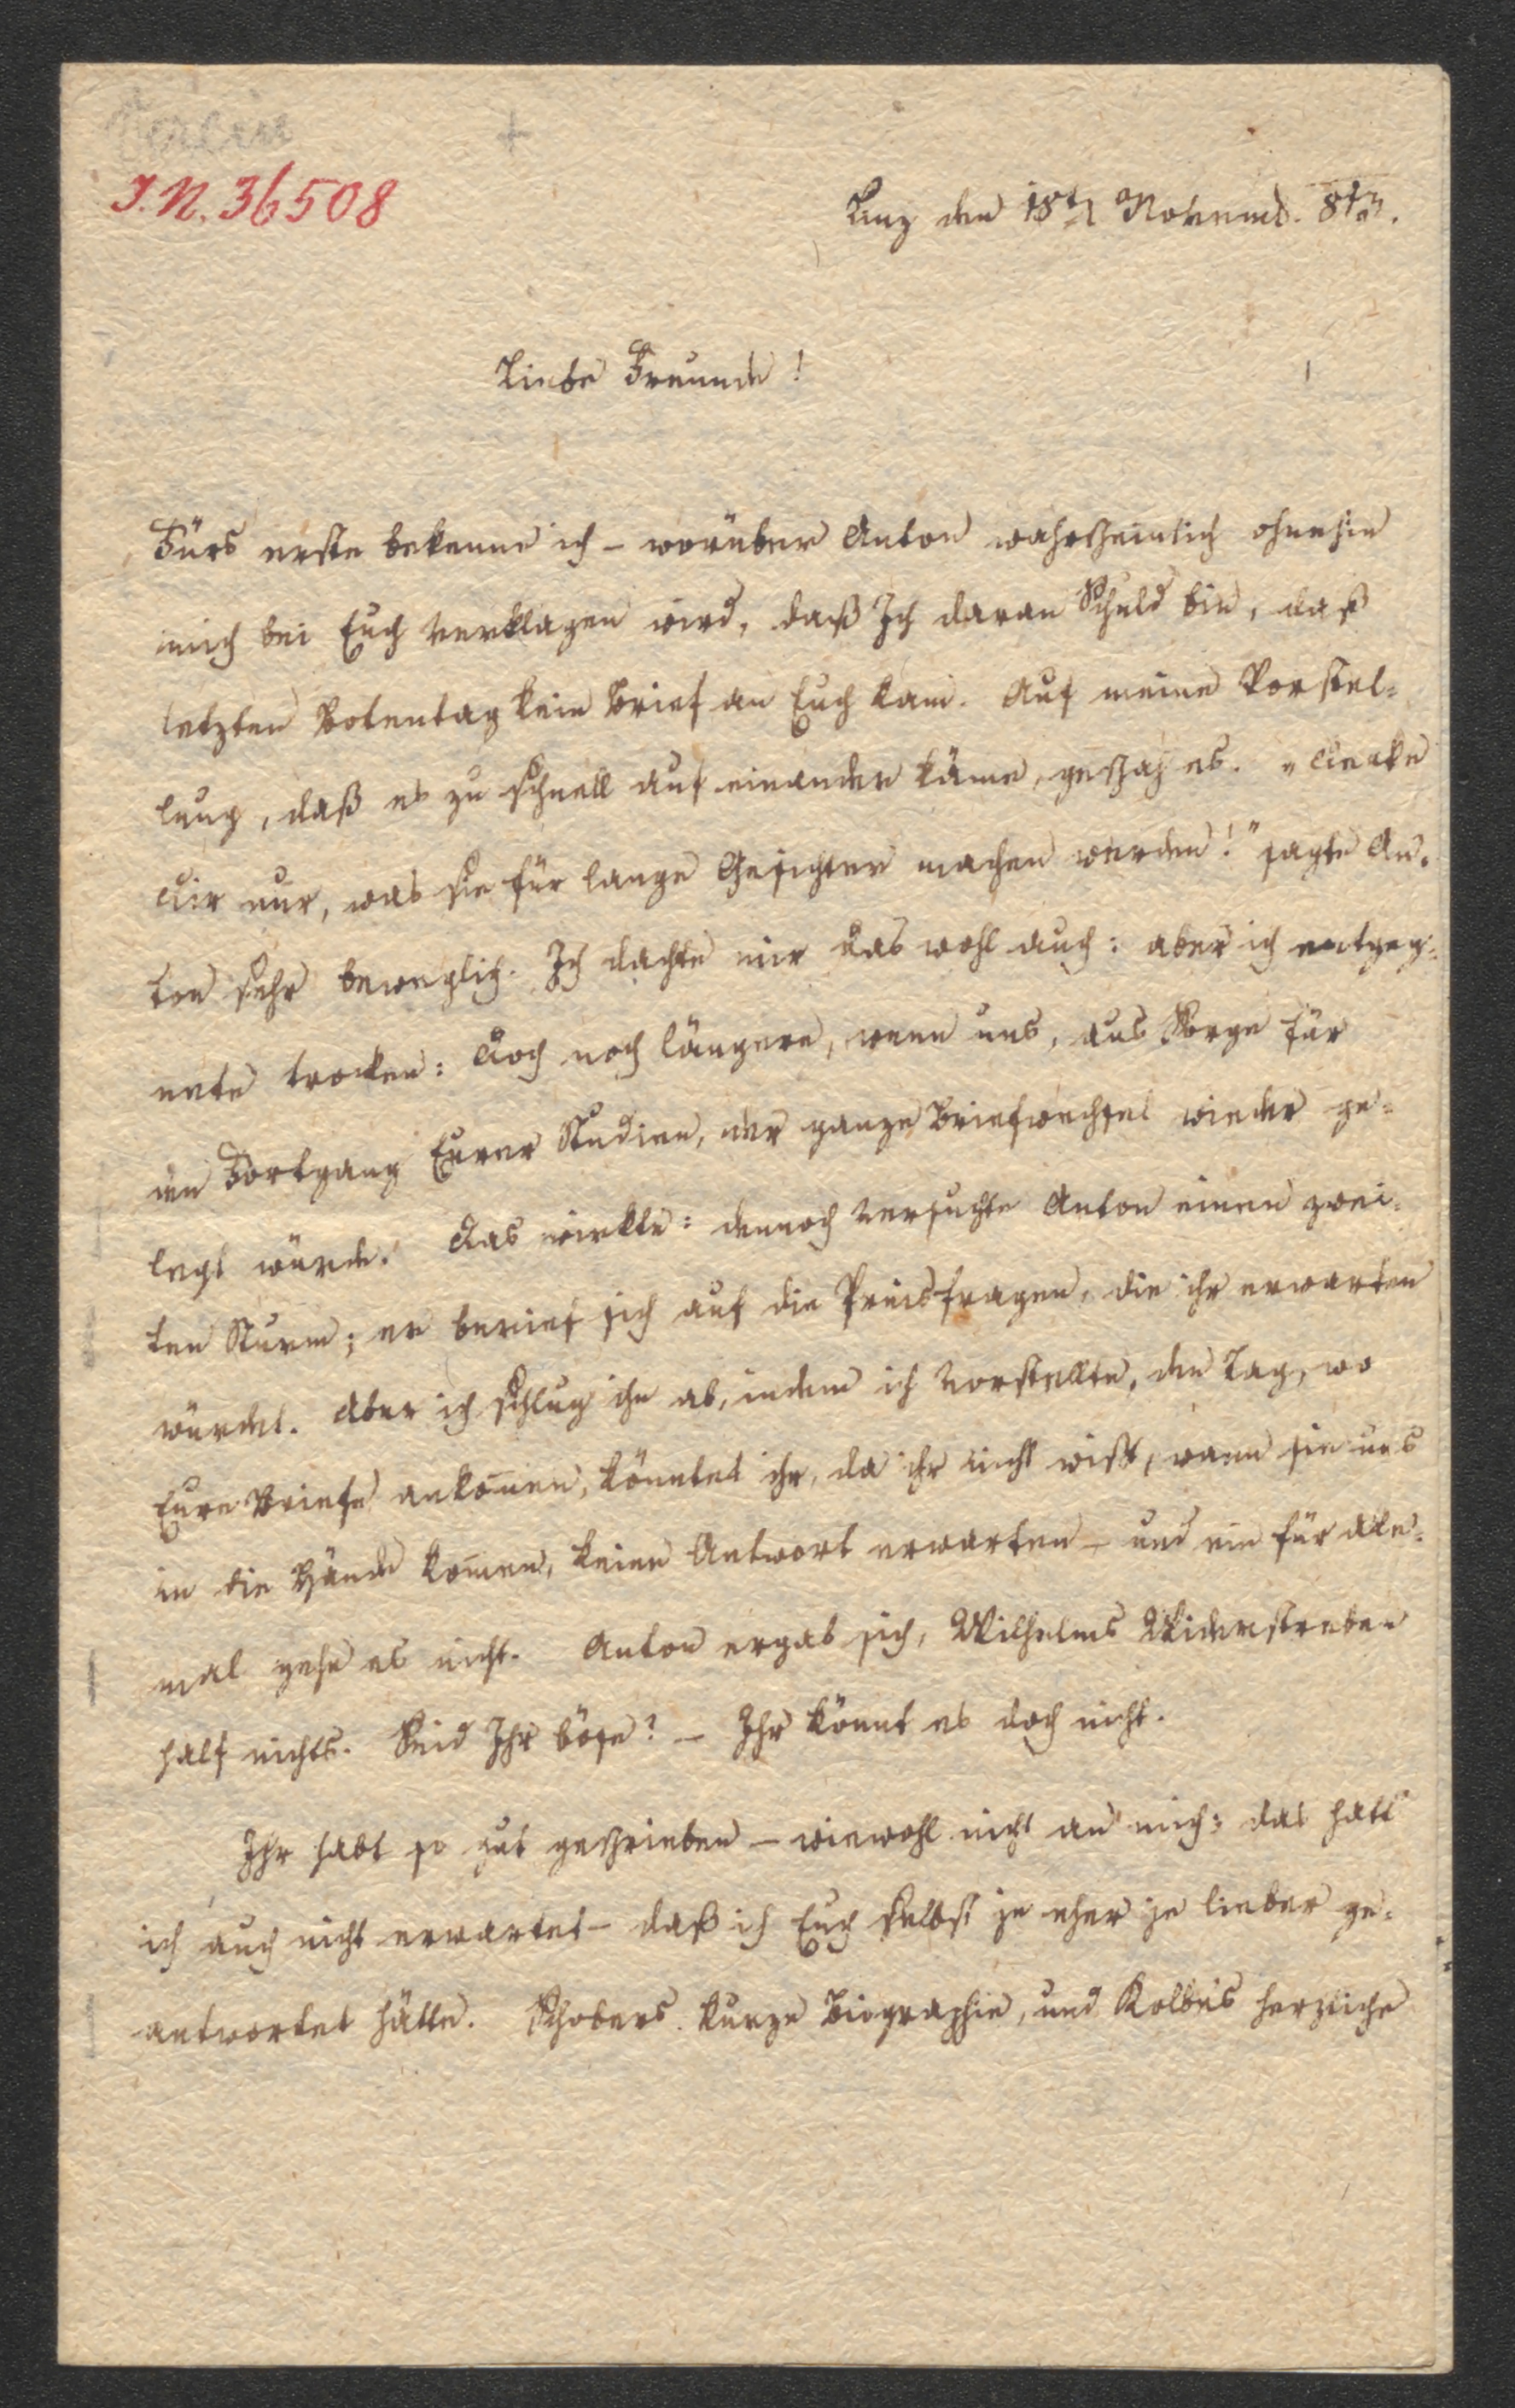 J.N. 36508
Linz den 18t Novemb. 817.
Liebe Freunde!
Fürs erste bekenne ich – worüber Anton wahrscheinlich ohnehin
mich bei Euch verklagen wird, daß Ich daran Schuld bin, daß
letzten Botentag kein Brief an Euch kam. Auf meine Vorstel-
lung, daß es zu schnell auf einander käme, geschah es. „Denke
Dir nur, was sie für lange Gesichter machen würden!" sagte An-
ton sehr beweglich. Ich dachte mir das wohl auch: aber ich entgeg-
nete trocken: Doch noch längere, wenn uns, aus Sorge für
den Fortgang Eurer Studien, der ganze Briefwechsel wieder ge-
legt würde. Das wirkte: dennoch versuchte Anton einen zwei-
ten Sturm; er berief sich auf die Preisfragen, die ihr erwarten
würdet. Aber ich schlug ihn ab, indem ich vorstellte, den Tag, wo
Eure Briefe ankom̅en, könntet ihr, da ihr nicht wißt, wann sie uns
in die Hände kom̅en, keine Antwort erwarten – und ein für alle-
mal gehe es nicht. Anton ergab sich, Wilhelms Widerstreben
half nichts. Seid Ihr böse? – Ihr könnt es doch nicht.
Ihr habt so gut geschrieben – wiewohl nicht an mich: das hätt
ich auch nicht erwartet – daß ich Euch selbst je eher je lieber ge-
antwortet hätte. Schobers kurze Biographie, und Kolbes herzliche